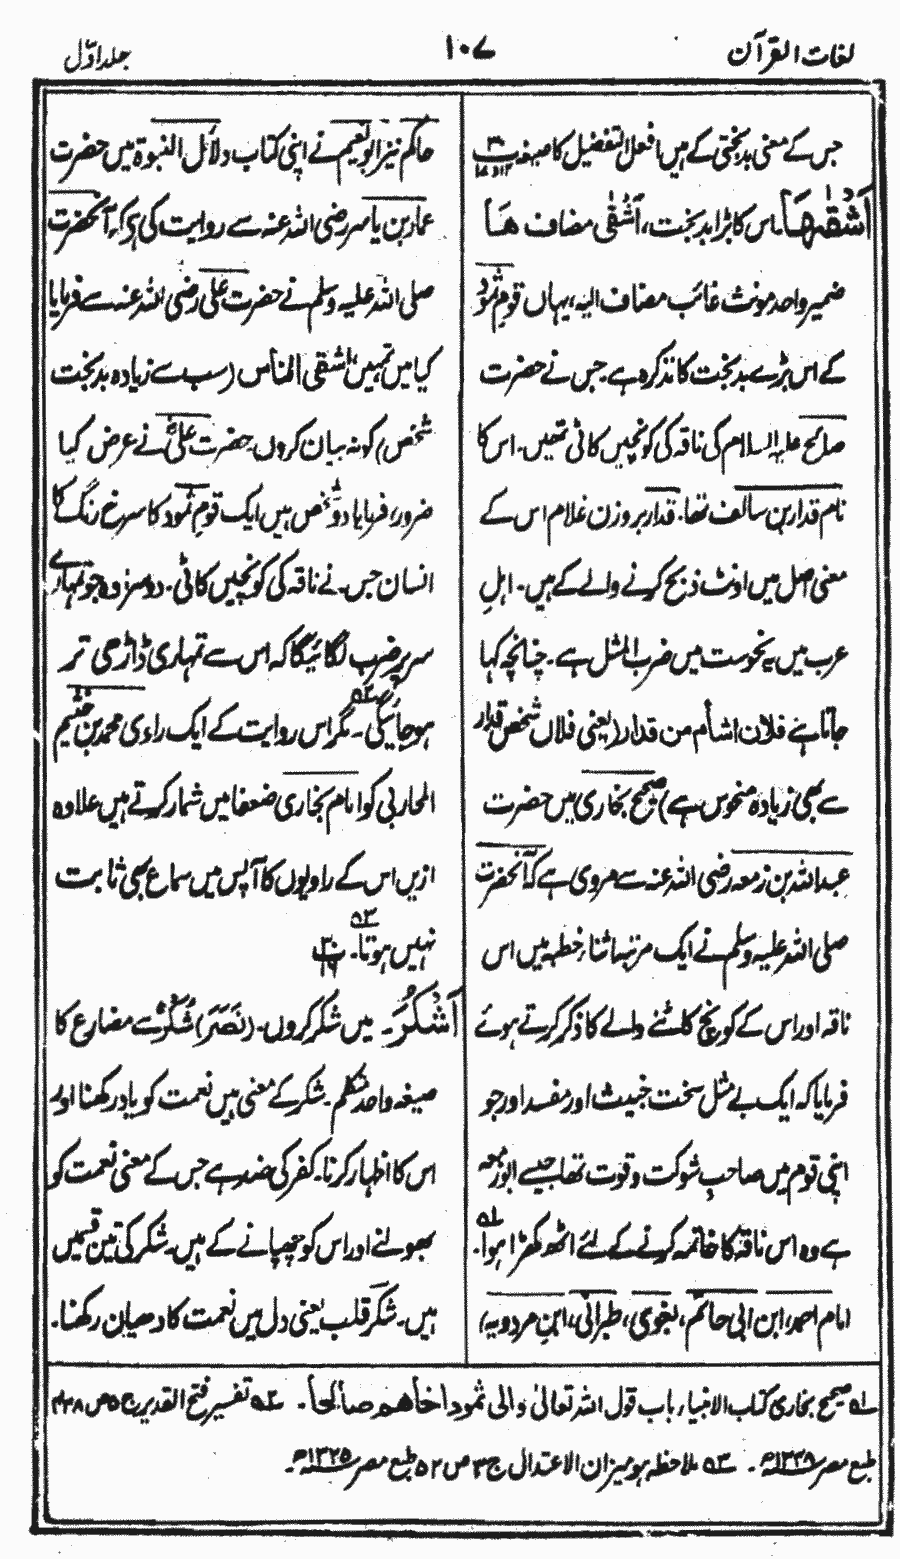 لغات القرآن
۱۰۷
جلد اوّل
جس کے معنی بدبختی کے ہیں افعل التفضیل کا صیغہ
اَشْقٰهَا۔ اس کا بڑا بدبخت، اَشْقٰی مضاف ھَا
ضمیر واحد مونث غائب مضاف الیہ، یہاں قومِ ثمود
کے اس بڑے بدبخت کا تذکرہ ہے۔ جس نے حضرت
صالح علیہ السلام کی ناقہ کی کونچیں کاٹی تھیں۔ اس کا
نام قدار بن سالف تھا۔ قدار بروزن غلام اس کے
معنی اصل میں اونٹ ذبح کرنے والے کے ہیں۔ اہلِ
عرب میں یہ نحوست میں ضرب المثل ہے۔ چنانچہ کہا
جاتا ہے فلان اشأم من قدار (یعنی فلاں شخص قدار
سے بھی زیادہ منحوس ہے) صحیح بخاری میں حضرت
عبداللہ بن زمعہ رضی اللہ عنہ سے مروی ہے کہ آنحضرت
صلی اللہ علیہ وسلم نے ایک مرتبہ اثنائے خطبہ میں اس
ناقہ اور اس کے کونچ کاٹنے والے کا ذکر کرتے ہوئے
فرمایا کہ ایک بے مثل سخت خبیث اور مفسد اور جو
اپنی قوم میں صاحبِ شوکت و قوت تھا جیسے ابوزمعہ
ہے وہ اس ناقہ کا خاتمہ کرنے کے لئے اٹھ کھڑا ہوا۔ ۵۱
امام احمد، ابن ابی حاتم، بغوی، طبرانی، ابنِ مردویہ،
حاکم نیز ابو نعیم نے اپنی کتاب دلائل النبوۃ میں حضرت
عمار بن یاسر رضی اللہ عنہ سے روایت کی ہے کہ آنحضرت
صلی اللہ علیہ وسلم نے حضرت علی رضی اللہ عنہ سے فرمایا
کیا میں تمہیں اشقی الناس (سب سے زیادہ بدبخت
شخص) کو نہ بیان کروں۔ حضرت علیؓ نے عرض کیا
ضرور، فرمایا دو شخص ہیں ایک قومِ ثمود کا سرخ رنگ کا
انسان جس نے ناقہ کی کونچیں کاٹی۔ دوسرا وہ جو تمہارے
سر پر ضرب لگائیگا کہ اس سے تمہاری ڈاڑھی تر
ہوجائیگی۔ ۵۲ مگر اس روایت کے ایک راوی محمد بن خثیم
المحاربی کو امام بخاری ضعفا میں شمار کرتے ہیں علاوہ
ازیں اس کے راویوں کا آپس میں سماع بھی ثابت
نہیں ہوتا۔ ۵۳
اَشْكُرَ۔ میں شکر کروں۔ (نَصَرَ) شُکْرٌ سے مضارع کا
صیغہ واحد متکلم۔ شکر کے معنی ہیں نعمت کو یاد رکھنا اور
اس کا اظہار کرنا۔ کفر کی ضد ہے جس کے معنی نعمت کو
بھولنے اور اس کو چھپانے کے ہیں۔ شکر کی تین قسمیں
ہیں۔ شکر قلب یعنی دل میں نعمت کا دھیان رکھنا۔
۵۱ صحیح بخاری کتاب الانبیاء، باب قول اللہ تعالیٰ والی ثمود اخاھم صالحاً۔ ۵۲ تفسیر فتح القدیر ج ۵ ص ۴۳۸
طبع مصر ۔ ۵۳ ملاحظہ ہو میزان الاعتدال ج ۳ ص ۵۲ طبع مصر ۱۳۲۵ھ۔